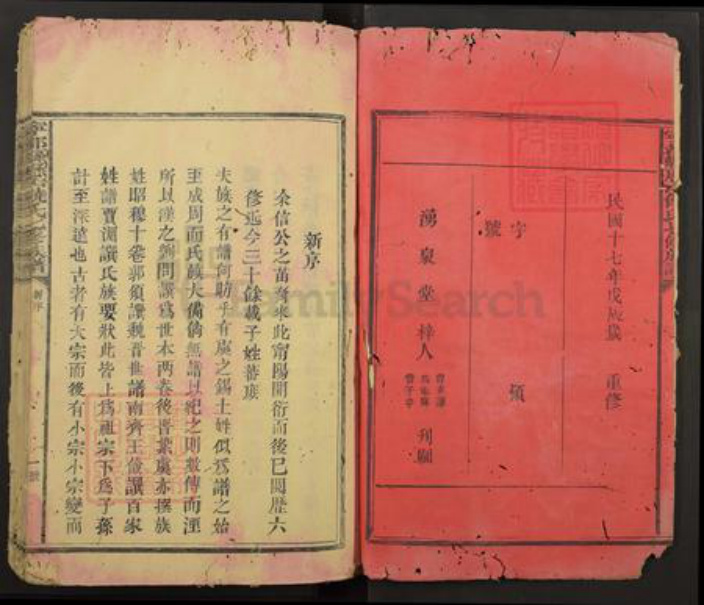 民國十七年戊辰歲 重修
字 號 領
湧泉堂梓人 刊刷
新序
余信公之苗裔來此甯陽開衍而後已閱歷六
修迄今三十餘載子姓蕃庶
夫族之有譜何昉乎有虞之錫土姓似爲譜之始
至成周而氏族大備倘無譜以紀之則數傳而湮
所以漢之劉問譔爲世本两卷後晋摯虞亦撰族
姓昭穆十卷郭須譔魏晋世譜南齊王儉譔百家
姓譜賈淵譔氏族要狀此皆上爲祖宗下爲子孫
計至深遠也古者有大宗而後有小宗小宗變而
新序
FamilySearch